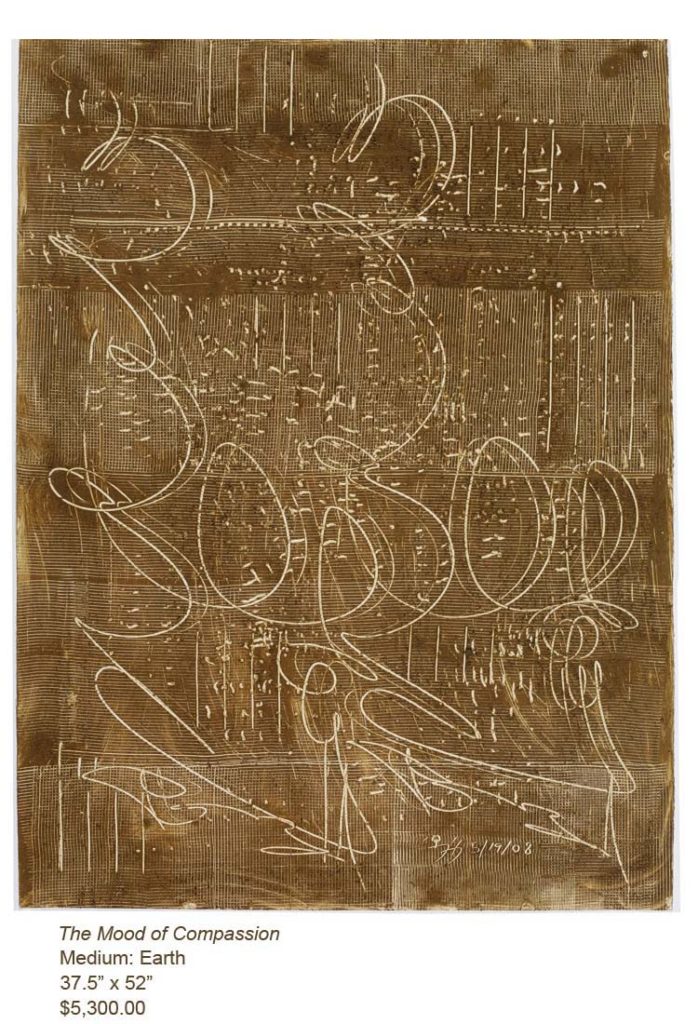 5/19/08
The Mood of Compassion
Medium: Earth
37.5” x 52”
$5,300.00